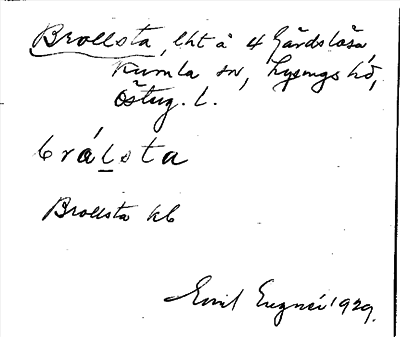 Brollsta, lht å 4 Gärdslösa,
Kumla sn, Lysings hd,
Östug. L.
brålsta
Brollsta kb
Emil 1929.